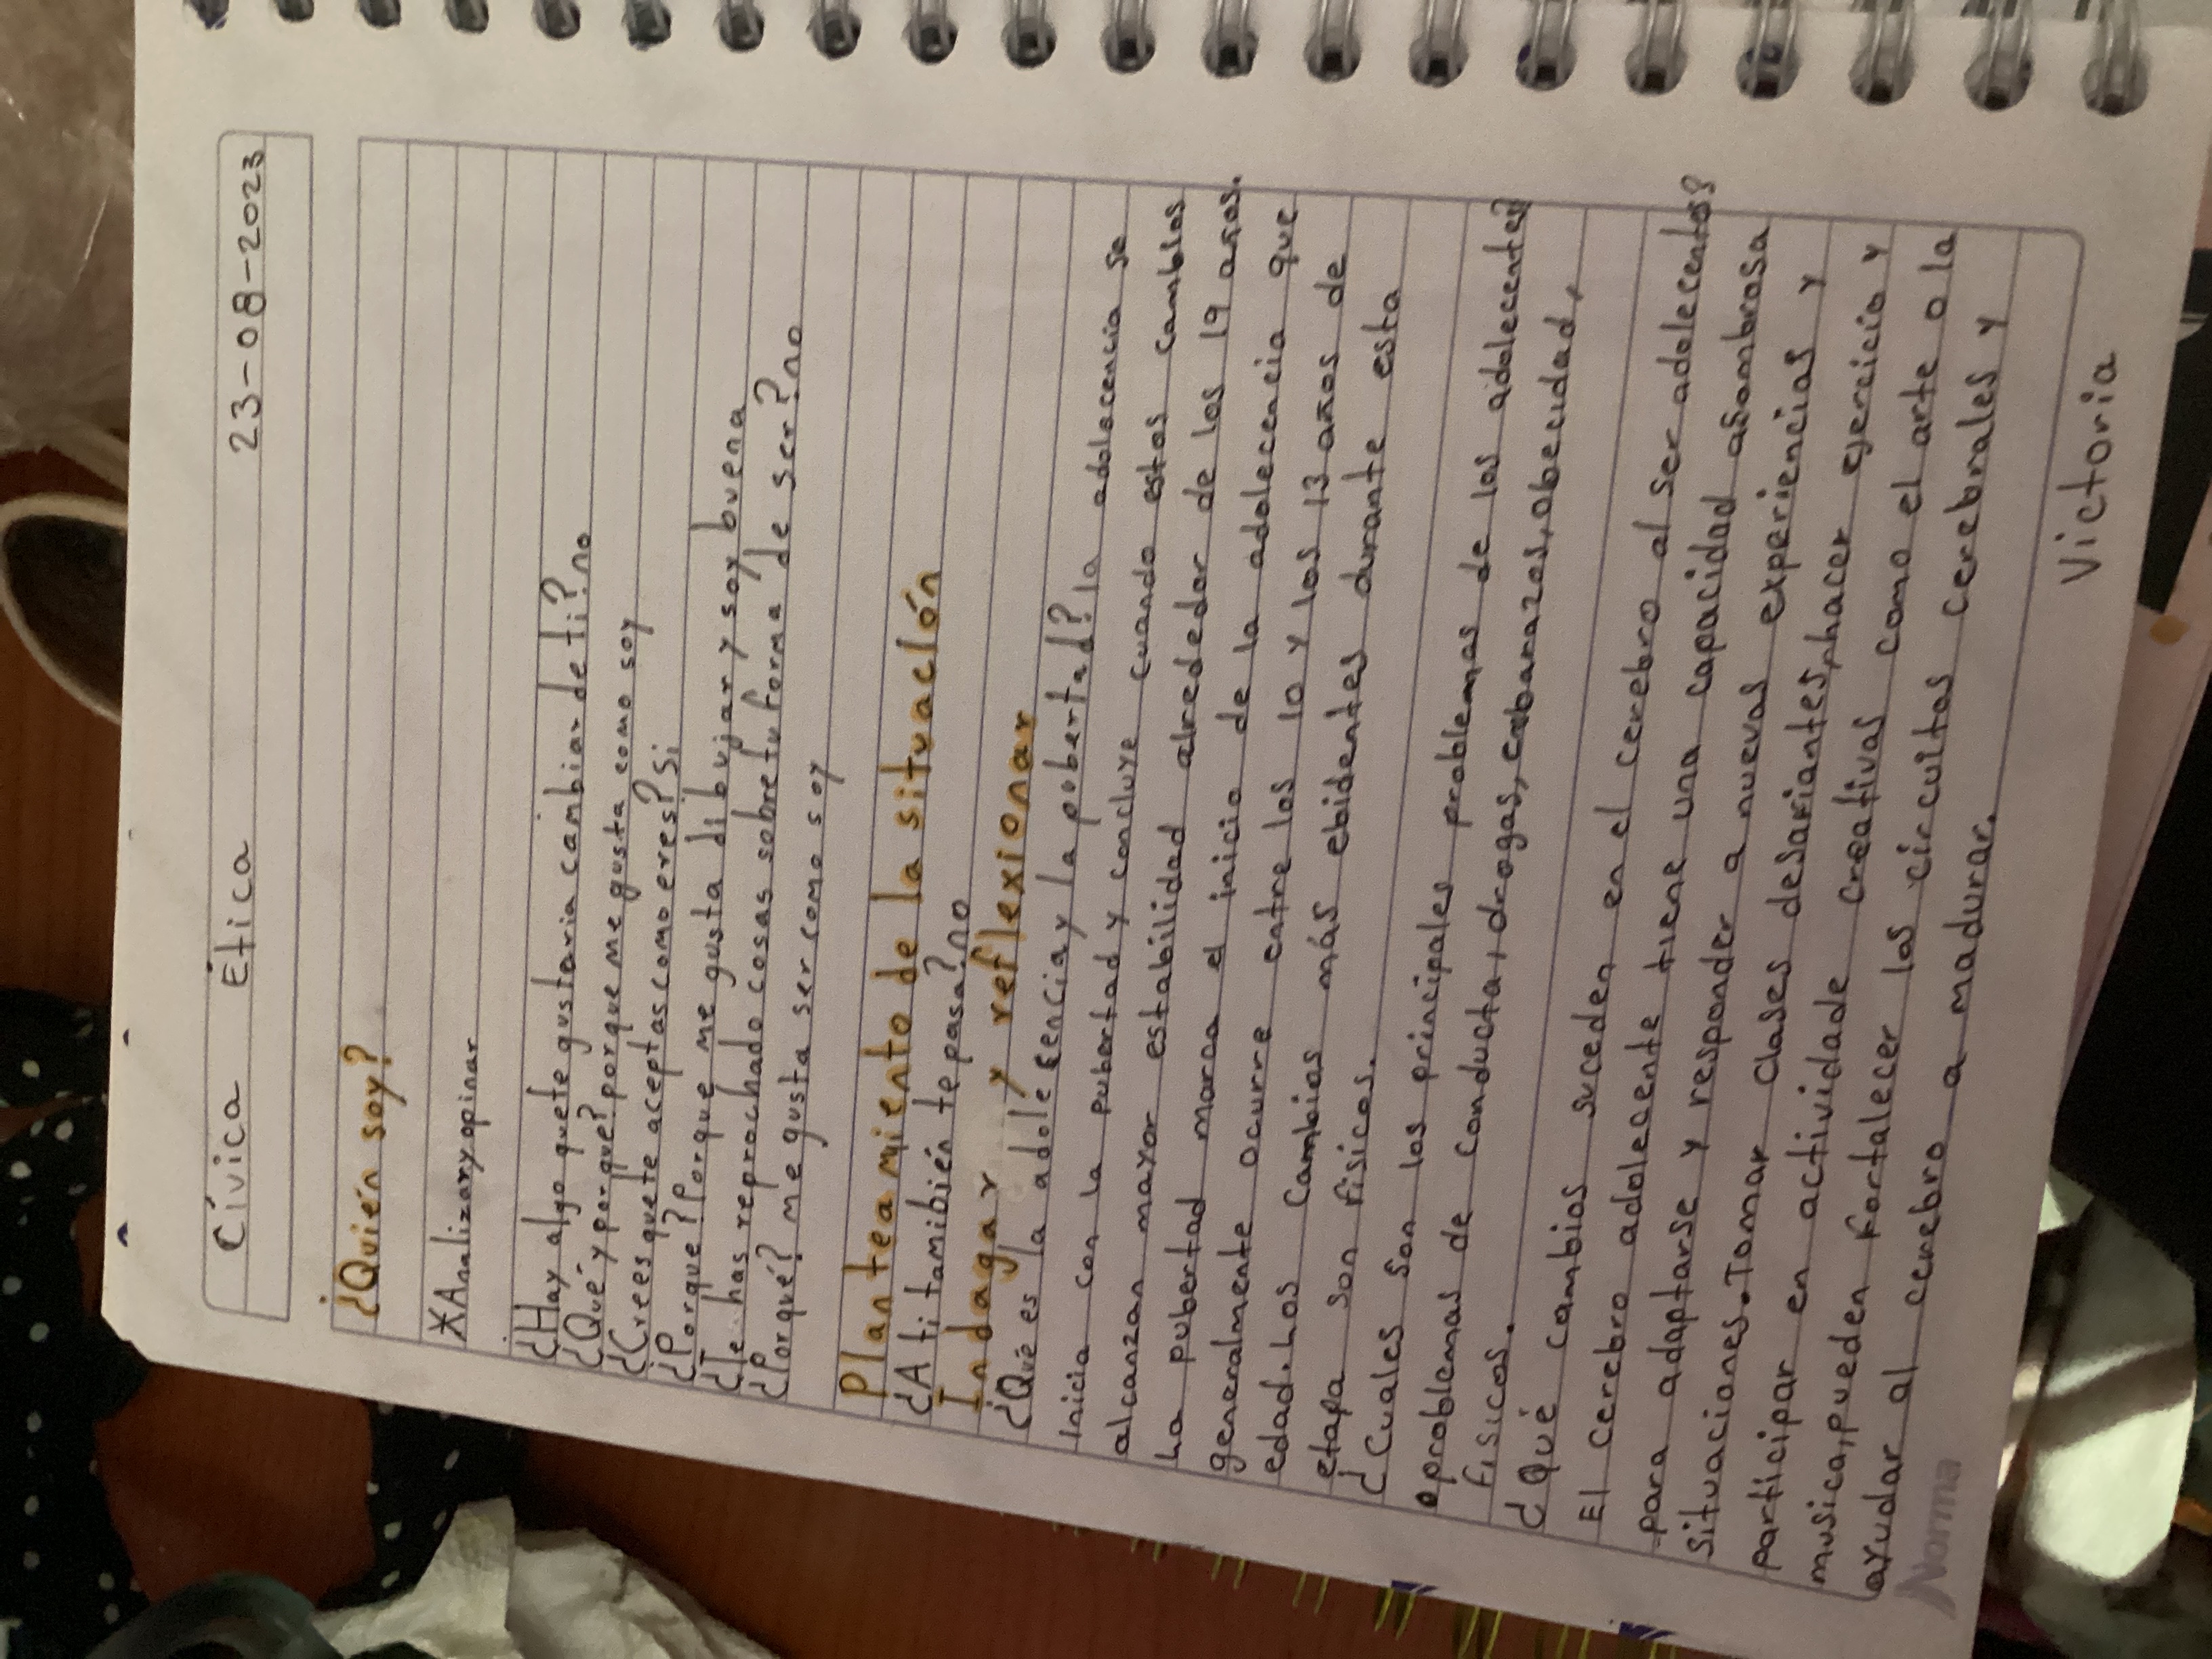 Cívica Ética 23-08-2023
¿Quién soy?
*Analizaryopinar
¿Hay algo quete gustaria cambiar de ti? no
¿Qué y porqué? porque me gusta como soy
¿Crees quete aceptas como eres? Si
¿Porque? Porque me gusta dibujar y soy buena
¿Te has reprochado cosas sobre tu forma de ser? no
¿Porqué? me gusta ser como soy
Planteamiento de la situación
¿A ti tamibién te pasa? no
Indagar y reflexionar
¿Qué es la adolesencia y la pobertad? la adolecencia se
inicia con la pubertad y concluye cuando estos cambios
alcanzan mayor estabilidad alrededor de los 19 años.
La pubertad marca el inicio de la adolecencia que
generalmente ocurre entre los 10 y los 13 años de
edad. Los cambios más ebidentes durante esta
etapa son fisicos.
¿Cuales son los principales problemas de los adolecentes?
problemas de conducta, drogas, embarazos, obecidad,
fisicos.
¿Qué cambios suceden en el cerebro al ser adolecentes?
El cerebro adolecente tiene una capacidad asombrosa
para adaptarse y responder a nuevas experiencias y
situaciones. Tomar clases desafiantes, hacer ejercicio y
participar en actividade creativas como el arte o la
musica, pueden fortalecer los circuitos cerebrales y
ayudar al cerebro a madurar.
Norma
Victoria